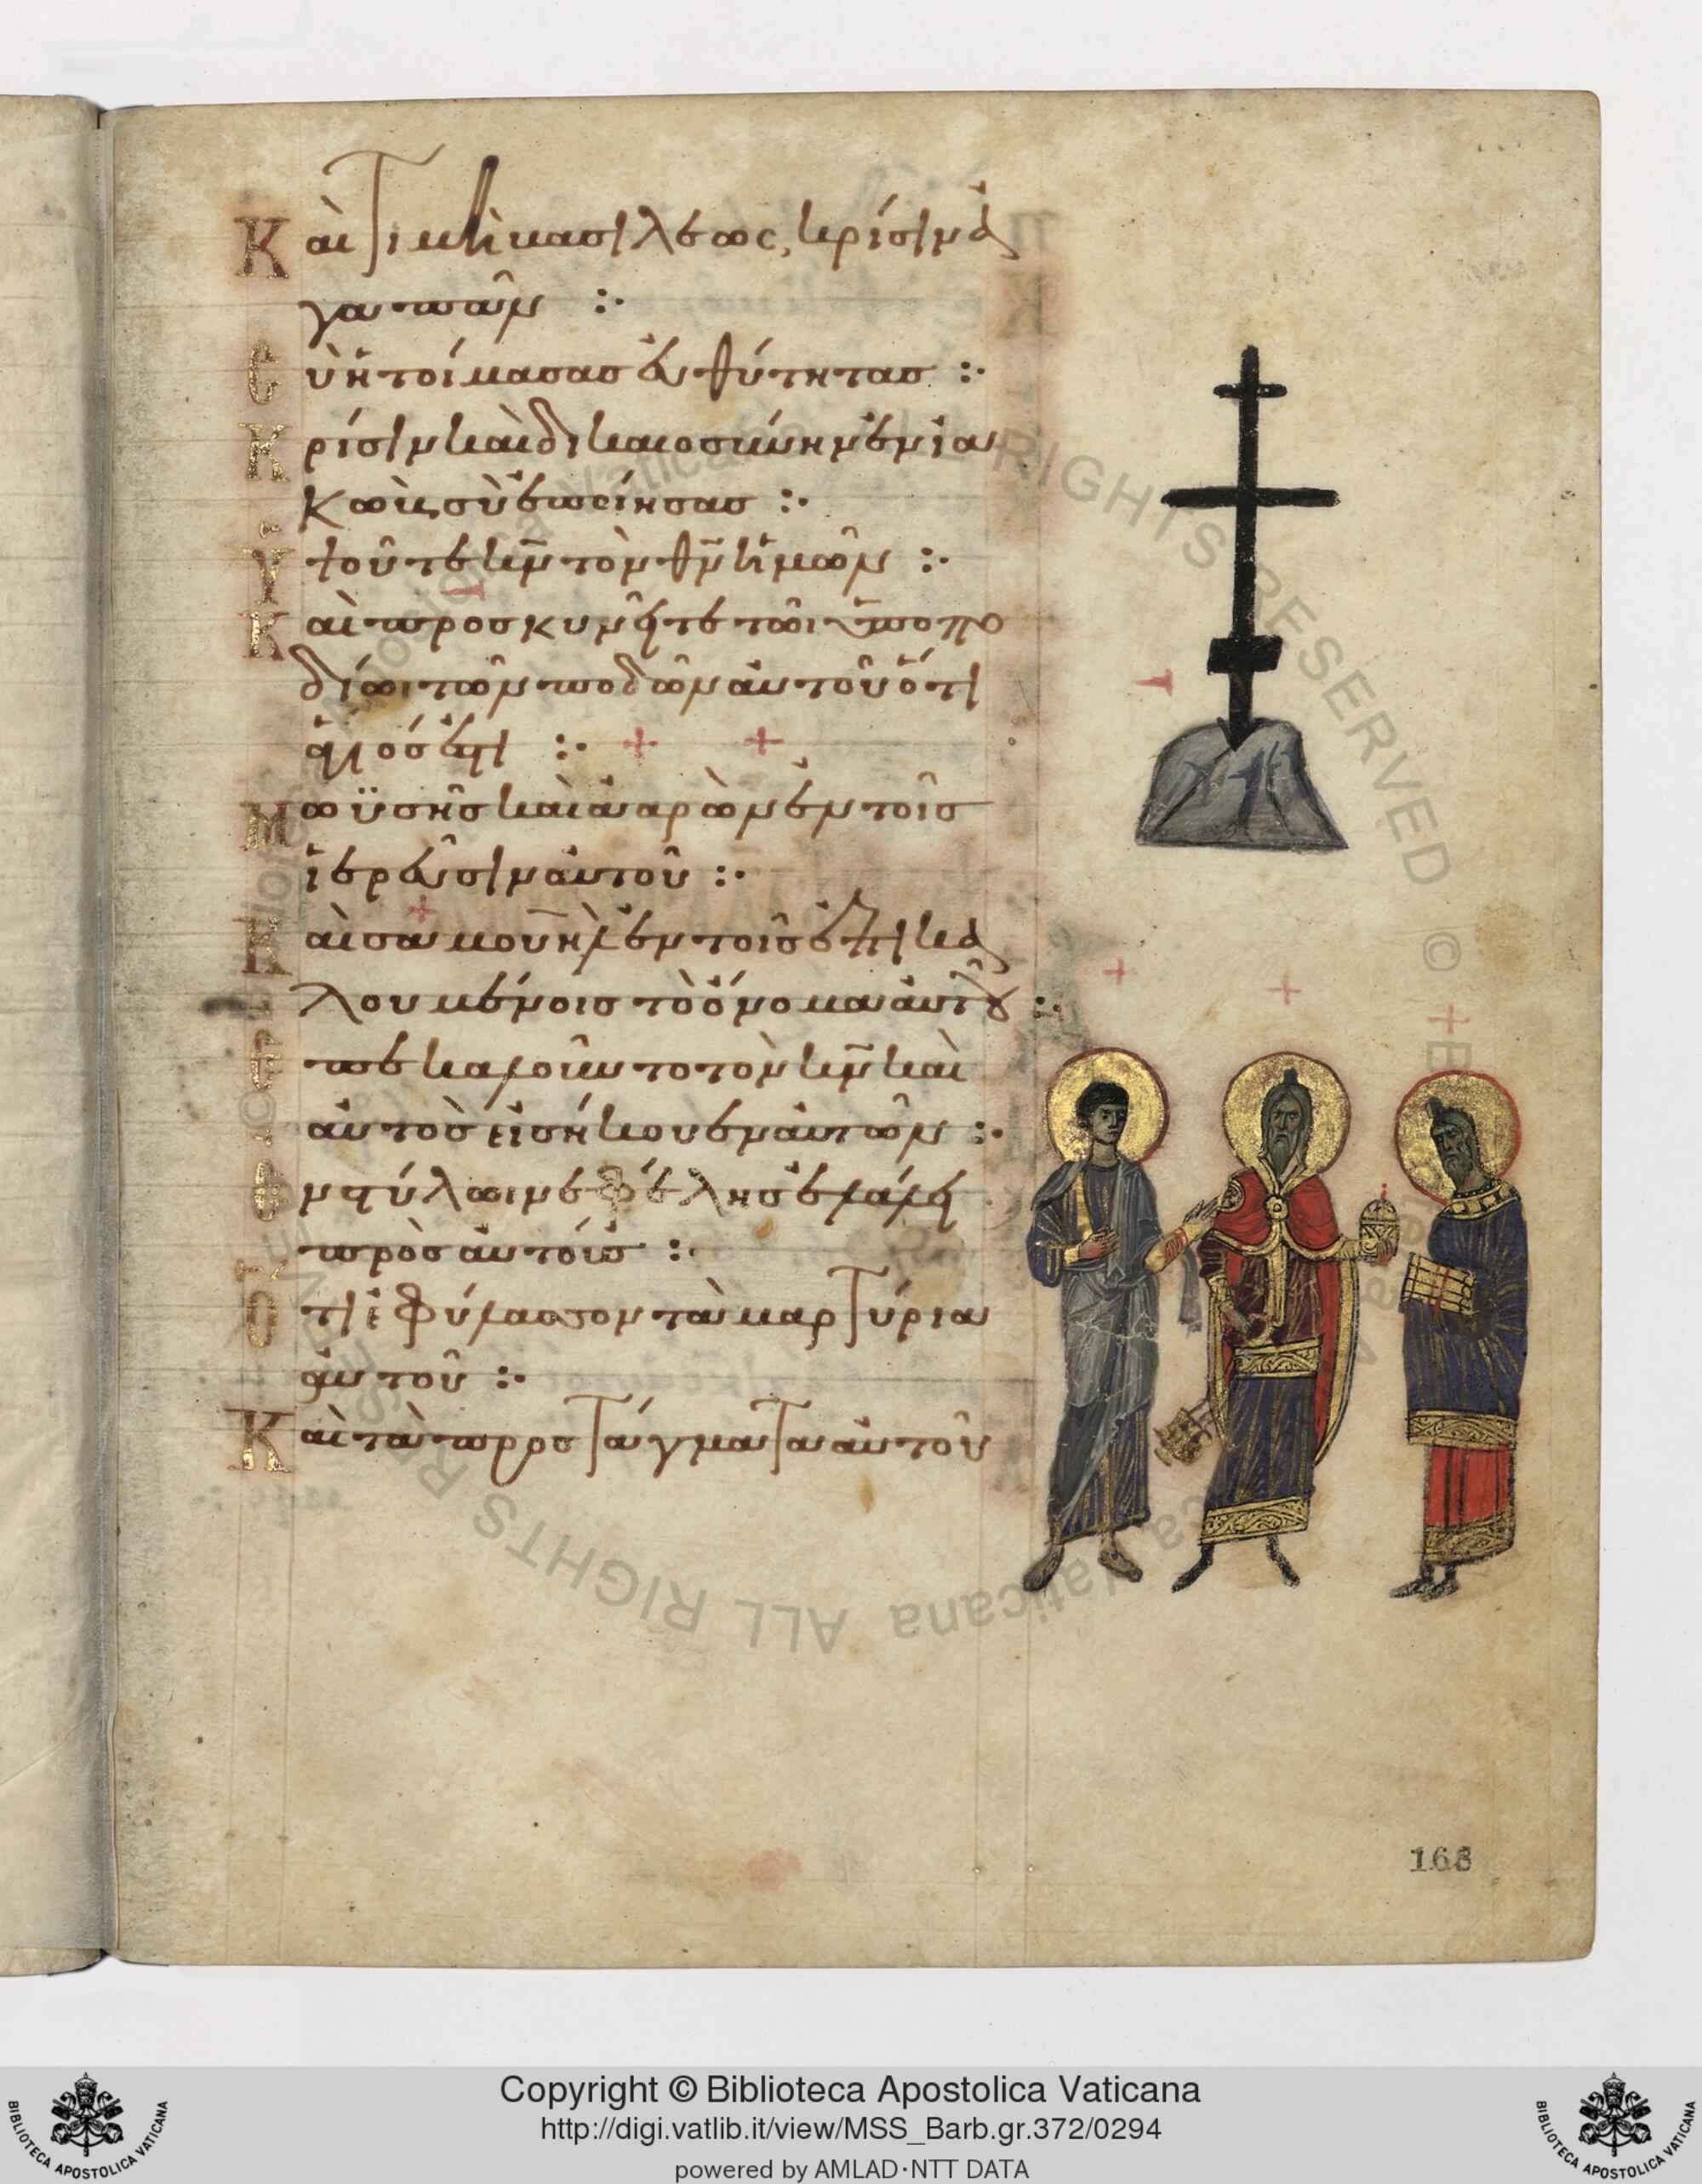 Καὶ τιμὴ βασιλέως, κρίσιν ἀ
γαπᾶν :·
Cὺ ἡτοίμασας εὐθύτητας :·
Κρίσιν καὶ δικαιοσύνην ἐν ἰα
κὼβ σὺ ἐποίησας :·
Ὑψοῦτε κν̅ τὸν θν̅ ἡμῶν :·
Καὶ προσκυνεῖτε τῶι ὑποπο
δίωι τῶν ποδῶν αὐτοῦ ὅτι
ἅγιός ἐστι :·
Μωϋσῆς καὶ ἀαρὼν ἐν τοῖς
ἱερεῦσιν αὐτοῦ :·
Καὶ σαμουὴλ ἐν τοῖς ἐπικα
λουμένοις τὸ ὄνομα αὐτοῦ :·
Ἐπεκαλοῦντο τὸν κν̅ καὶ
αὐτὸς εἰσήκουεν αὐτῶν :·
Ἐν στύλωι νεφέλης ἐλάλει
πρὸς αὐτούς :·
Ὅτι ἐφύλασσον τὰ μαρτύρια
αὐτοῦ :·
Καὶ τὰ προστάγματα αὐτοῦ
168
Copyright © Biblioteca Apostolica Vaticana
http://digi.vatlib.it/view/MSS_Barb.gr.372/0294
powered by AMLAD·NTT DATA
BIBLIOTECA APOSTOLICA VATICANA
BIBLIOTECA APOSTOLICA VATICANA